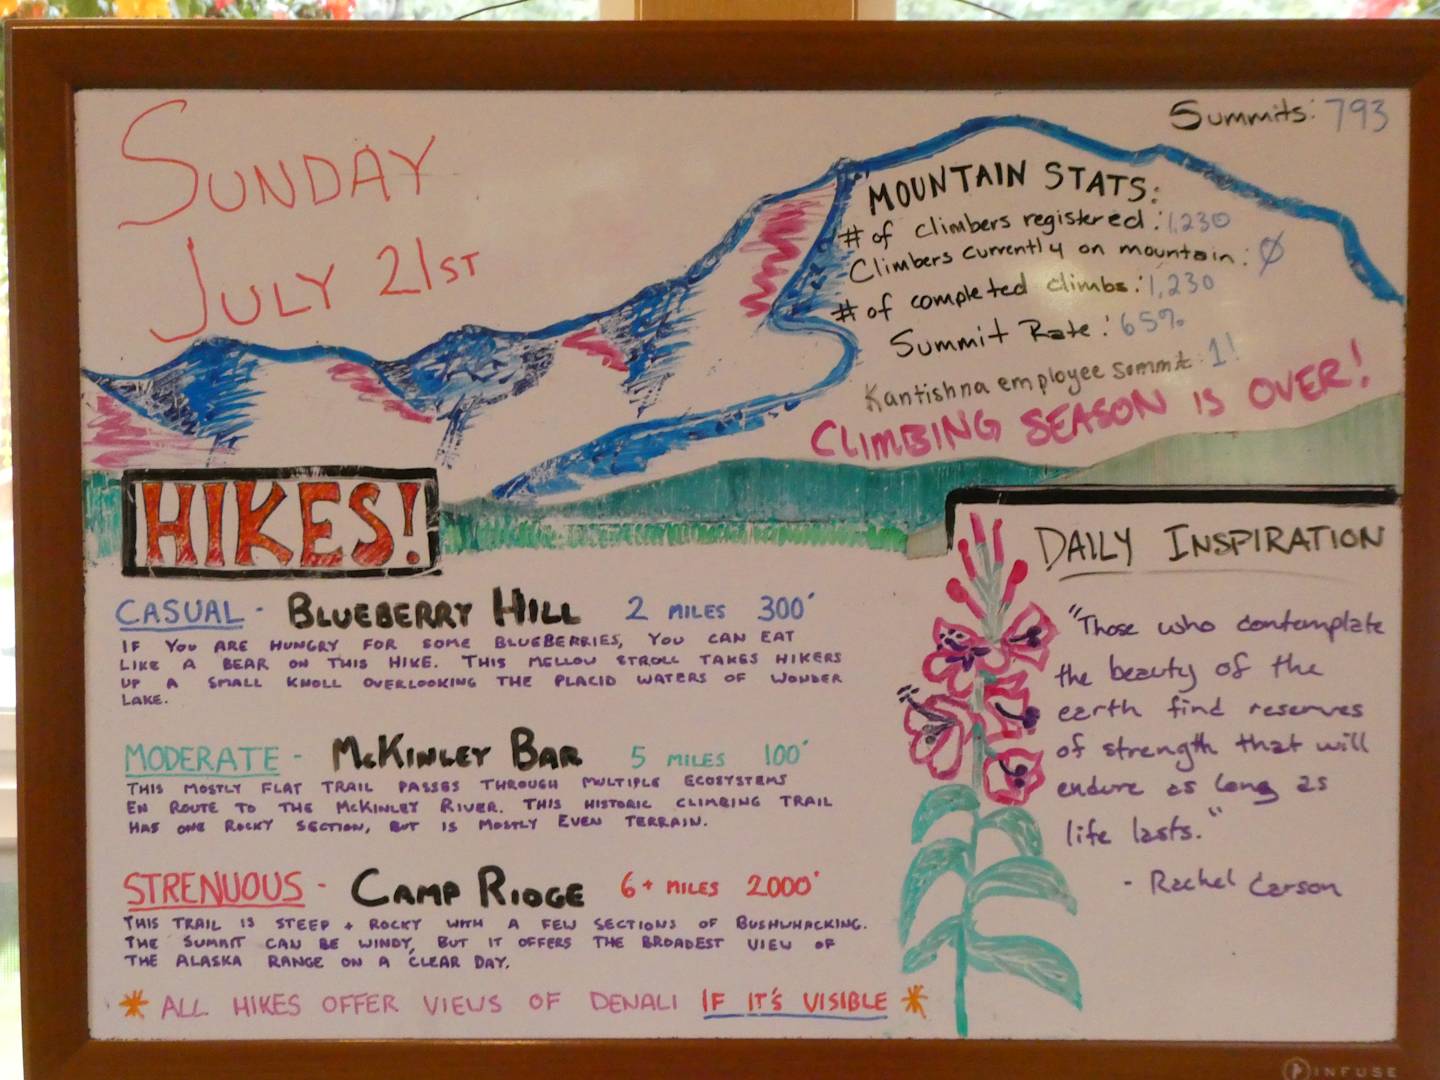 SUNDAY
JULY 21ST
Summits: 793
MOUNTAIN STATS:
# of climbers registered: 1,230
Climbers currently on mountain: Ø
# of completed climbs: 1,230
Summit Rate: 65%
Kantishna employee summit: 1!
CLIMBING SEASON IS OVER!
HIKES!
CASUAL - BLUEBERRY HILL 2 MILES 300'
IF YOU ARE HUNGRY FOR SOME BLUEBERRIES, YOU CAN EAT
LIKE A BEAR ON THIS HIKE. THIS MELLOW STROLL TAKES HIKERS
UP A SMALL KNOLL OVERLOOKING THE PLACID WATERS OF WONDER
LAKE.
MODERATE - MCKINLEY BAR 5 MILES 100'
THIS MOSTLY FLAT TRAIL PASSES THROUGH MULTIPLE ECOSYSTEMS
EN ROUTE TO THE MCKINLEY RIVER. THIS HISTORIC CLIMBING TRAIL
HAS ONE ROCKY SECTION, BUT IS MOSTLY EVEN TERRAIN.
STRENUOUS - CAMP RIDGE 6+ MILES 2000'
THIS TRAIL IS STEEP + ROCKY WITH A FEW SECTIONS OF BUSHWHACKING.
THE SUMMIT CAN BE WINDY, BUT IT OFFERS THE BROADEST VIEW OF
THE ALASKA RANGE ON A CLEAR DAY.
ALL HIKES OFFER VIEWS OF DENALI IF IT'S VISIBLE
DAILY INSPIRATION
"Those who contemplate
the beauty of the
earth find reserves
of strength that will
endure as long as
life lasts."
- Rachel Carson
INFUSE